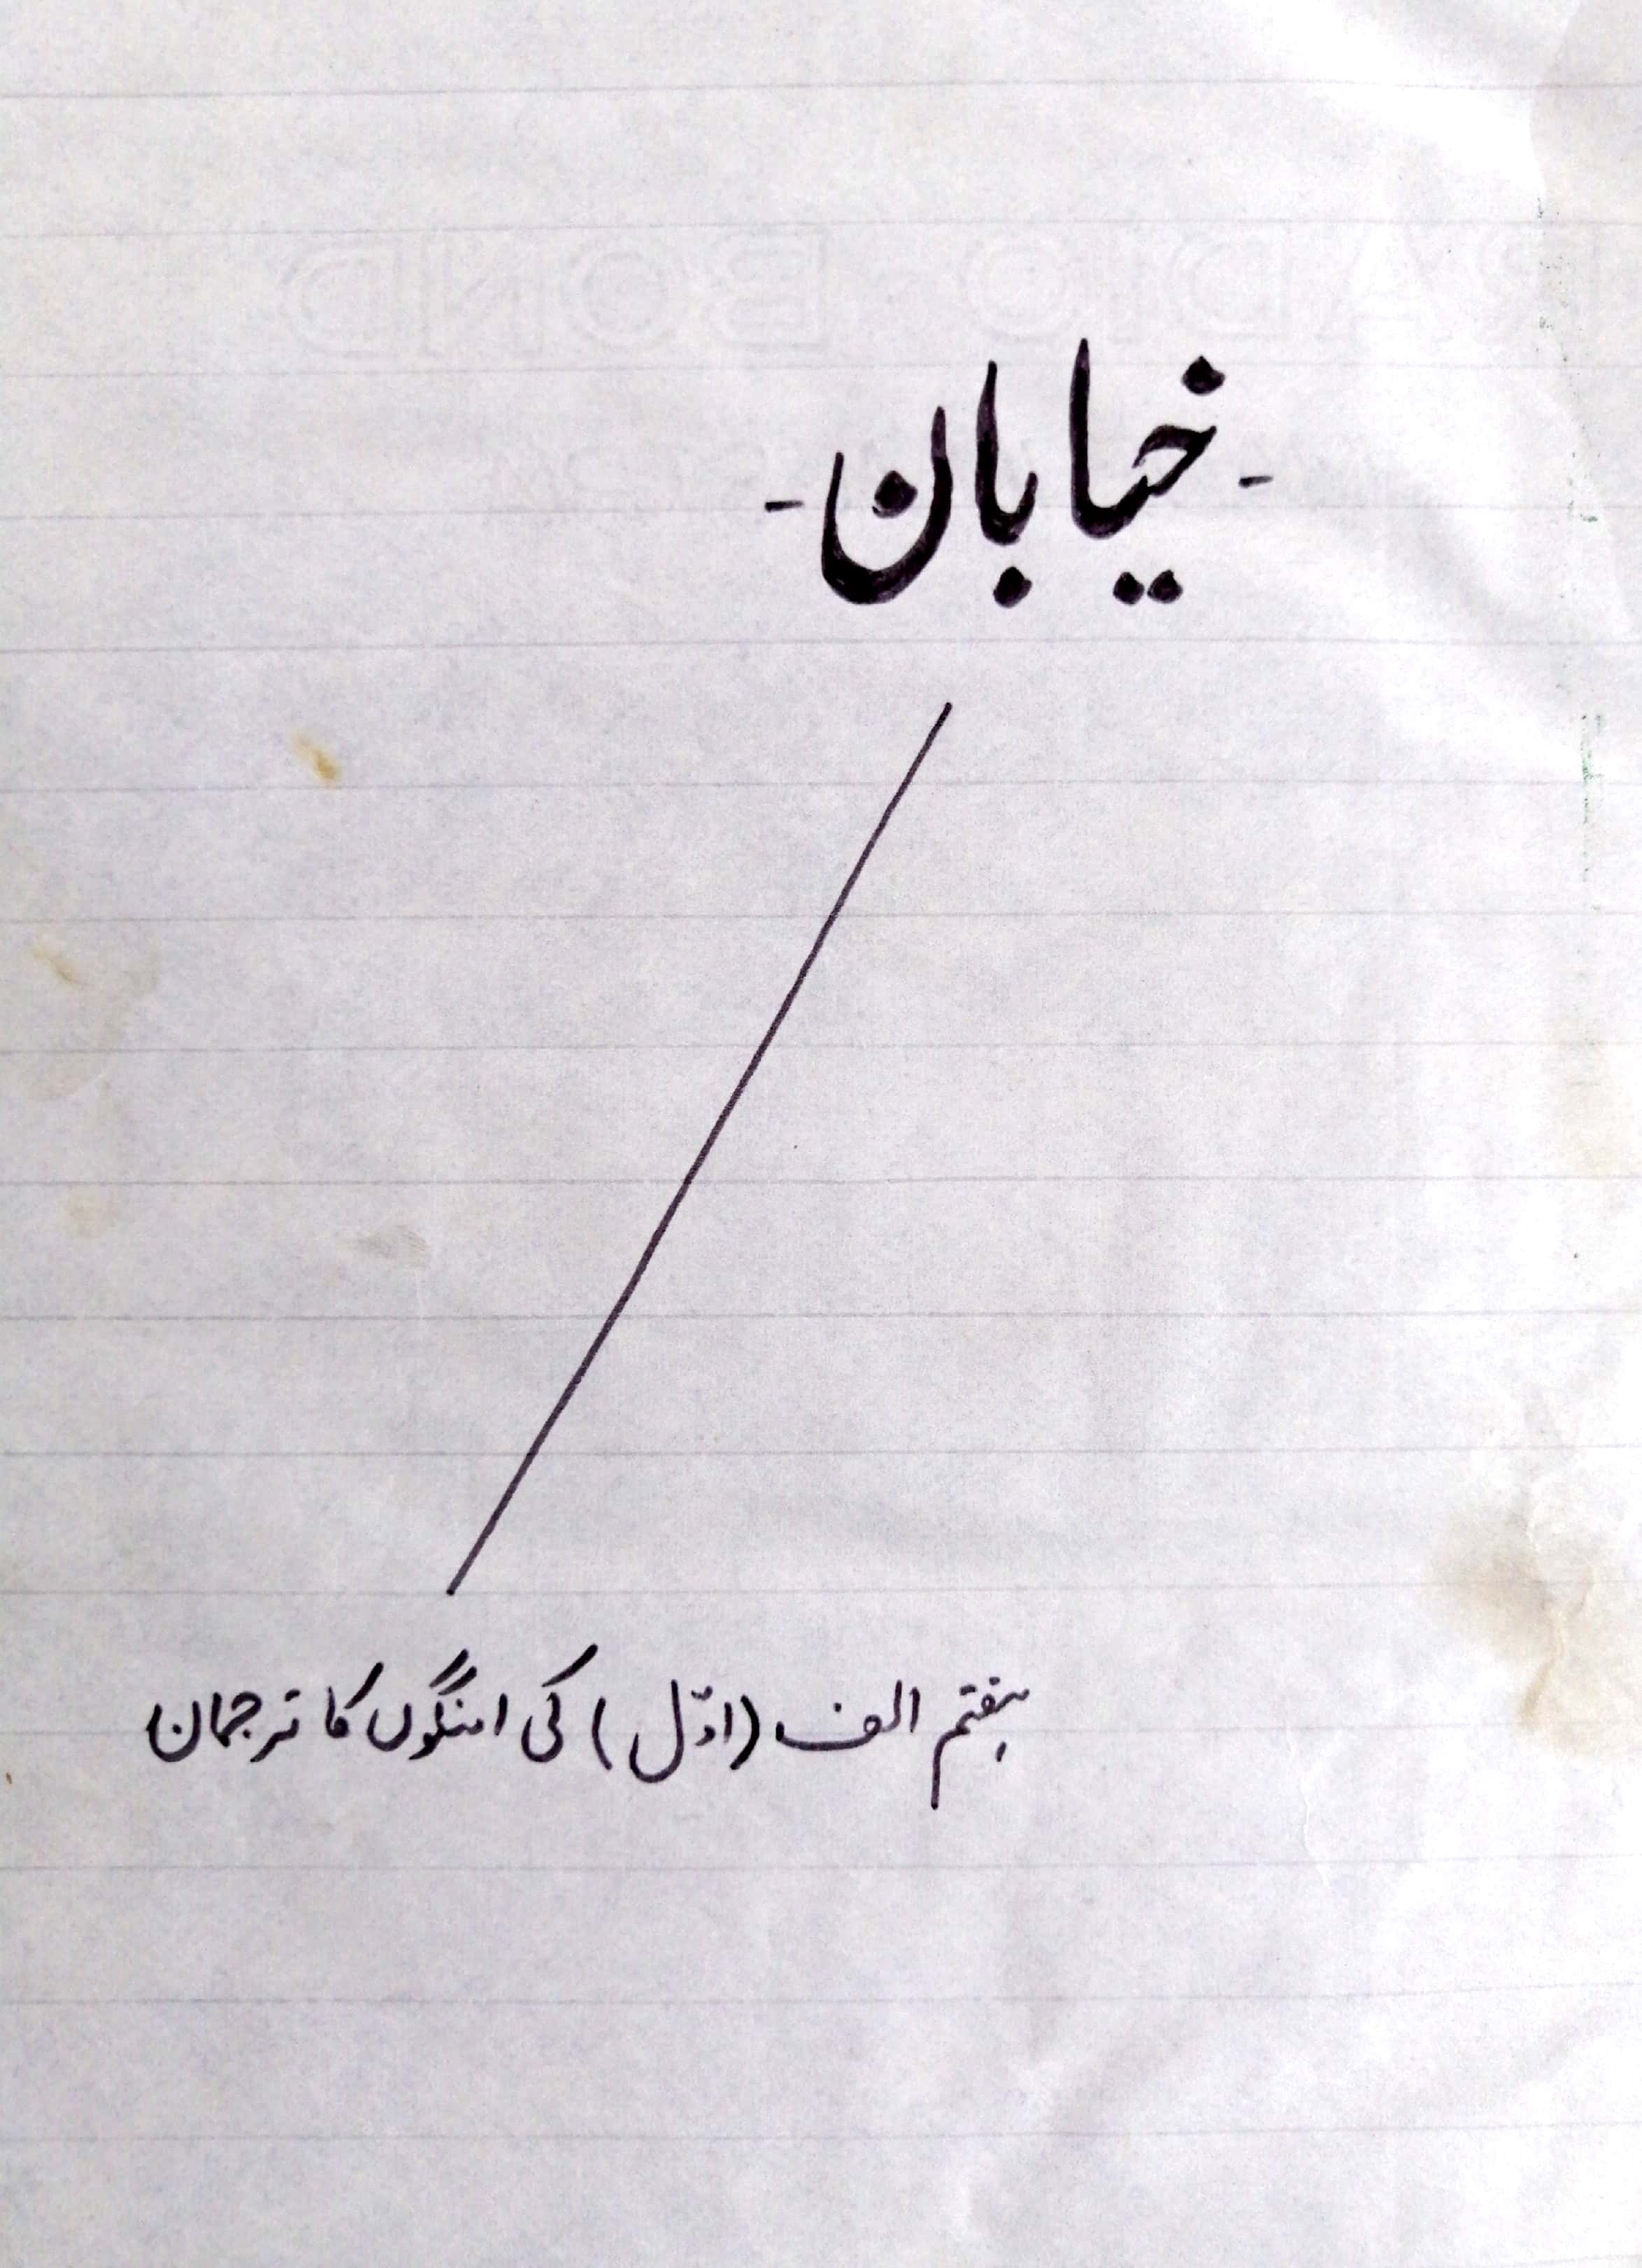 RADIO BOND
- خیابان -
ہفتم الف (اوّل) کی امنگوں کا ترجمان